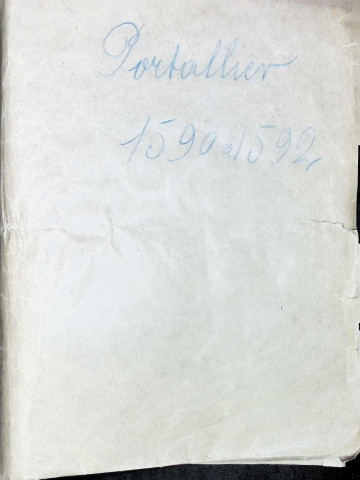 Portallier
1590 à 1592